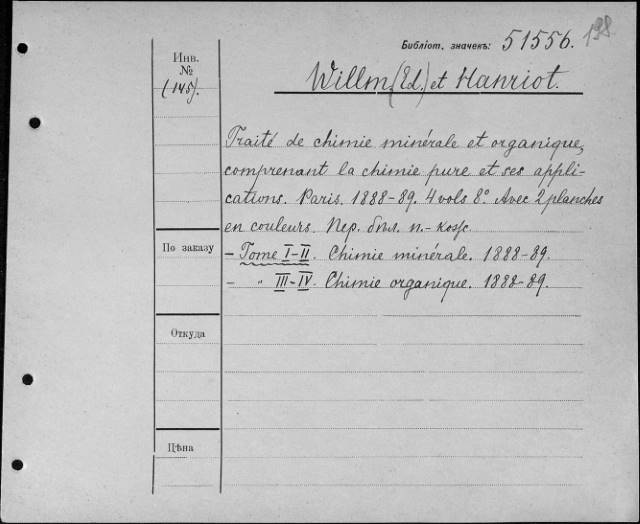 Библіот. значекъ: 51556. 198
Инв.
№
(145).
Willm (Ed.) et Hanriot.
Traité de chimie minérale et organique,
comprenant la chimie pure et ses appli-
cations. Paris. 1888-89. 4 vols 8° Avec 2 planches
en couleurs. Пер. бпл. п.-кож.
По заказу
– Tome I-II. Chimie minérale. 1888-89.
– " III-IV. Chimie organique. 1888-89.
Откуда
Цѣна